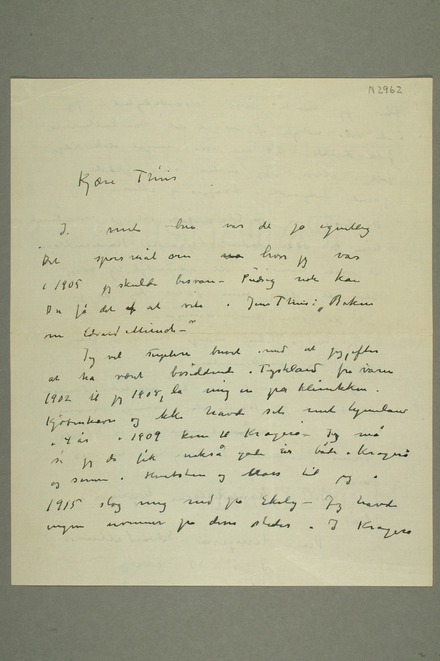 N 2962
Kjære Thiis
I mit brev var det jo egentlig
Det spørsmål om hvor jeg var
i 1905 jeg skulde besvare –
Du få det at vite i Jens Thiis: „Boken
om Edvard Munch –"
Jeg vil brevet med at jeg, efter
at ha vært bosiddende i Tyskland fra våren
1902 til jeg 1908, la mig inn på klinikken i
Kjøbenhavn og ikke havde set mit hjemland
i 4 år i 1909 kom til Kragerø – Jeg må
si jeg da fik også gode år både i Kragerø
og senere i Hvitsten og Moss til jeg i
1915 slog mig ned på Ekely – Jeg havde
ingen kommer på disse steder. I Kragerø